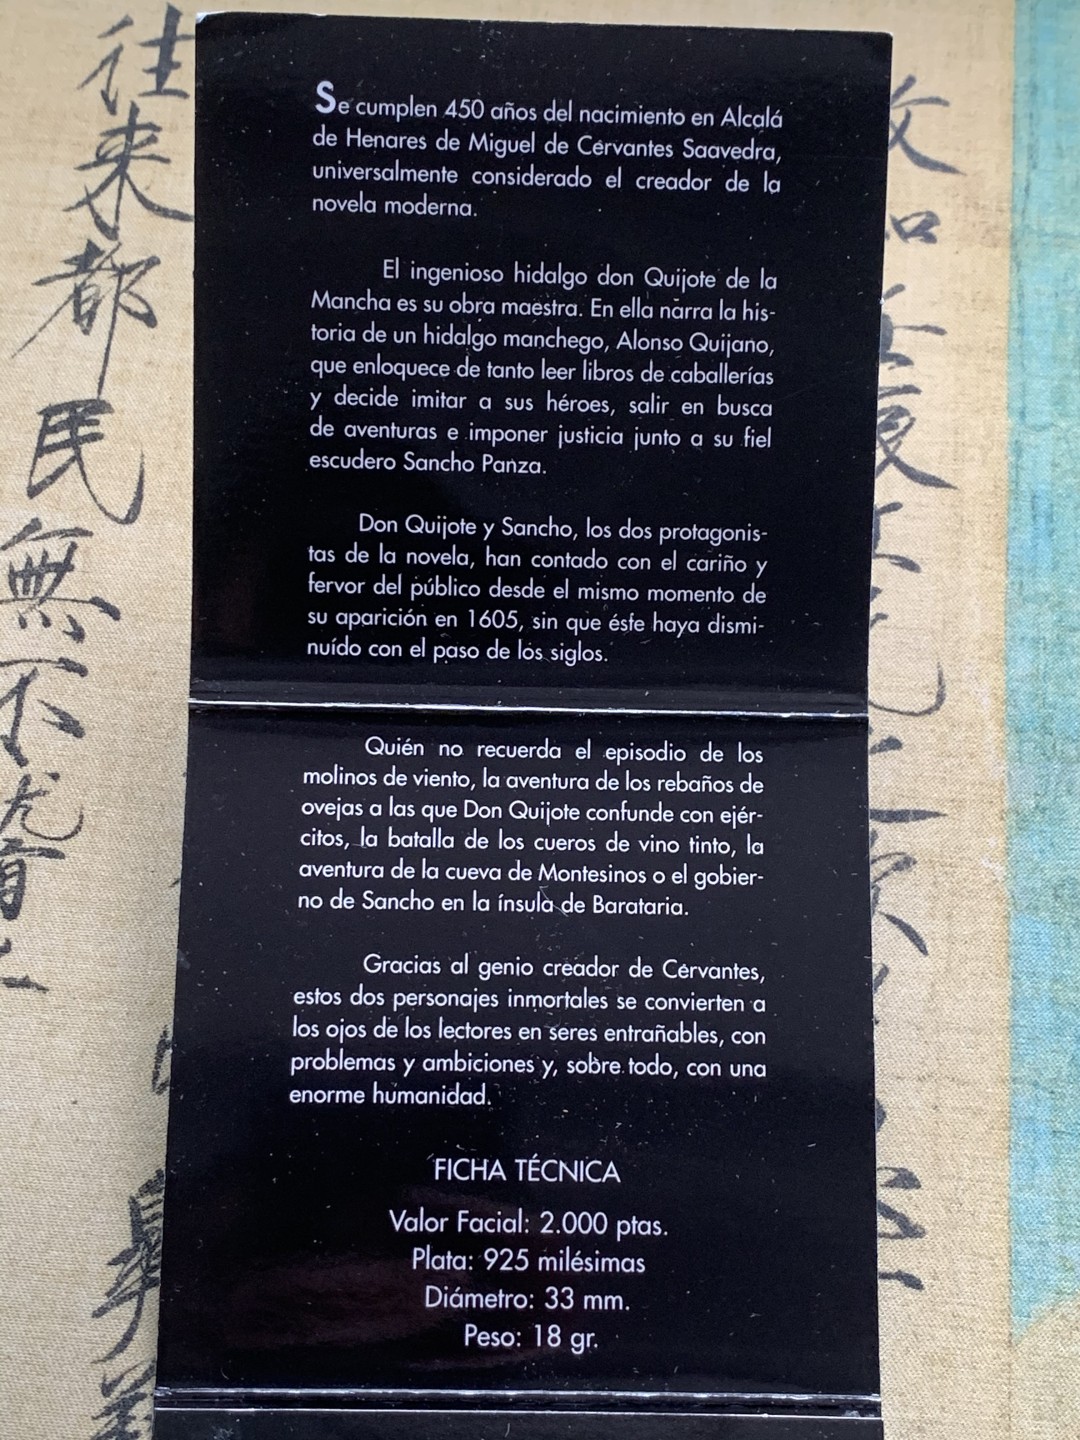 Se cumplen 450 años del nacimiento en Alcalá
de Henares de Miguel de Cervantes Saavedra,
universalmente considerado el creador de la
novela moderna.
El ingenioso hidalgo don Quijote de la
Mancha es su obra maestra. En ella narra la his-
toria de un hidalgo manchego, Alonso Quijano,
que enloquece de tanto leer libros de caballerías
y decide imitar a sus héroes, salir en busca
de aventuras e imponer justicia junto a su fiel
escudero Sancho Panza.
Don Quijote y Sancho, los dos protagonis-
tas de la novela, han contado con el cariño y
fervor del público desde el mismo momento de
su aparición en 1605, sin que éste haya dismi-
nuído con el paso de los siglos.
Quién no recuerda el episodio de los
molinos de viento, la aventura de los rebaños de
ovejas a las que Don Quijote confunde con ejér-
citos, la batalla de los cueros de vino tinto, la
aventura de la cueva de Montesinos o el gobier-
no de Sancho en la ínsula de Barataria.
Gracias al genio creador de Cervantes,
estos dos personajes inmortales se convierten a
los ojos de los lectores en seres entrañables, con
problemas y ambiciones y, sobre todo, con una
enorme humanidad.
FICHA TÉCNICA
Valor Facial: 2.000 ptas.
Plata: 925 milésimas
Diámetro: 33 mm.
Peso: 18 gr.
往來都民無不